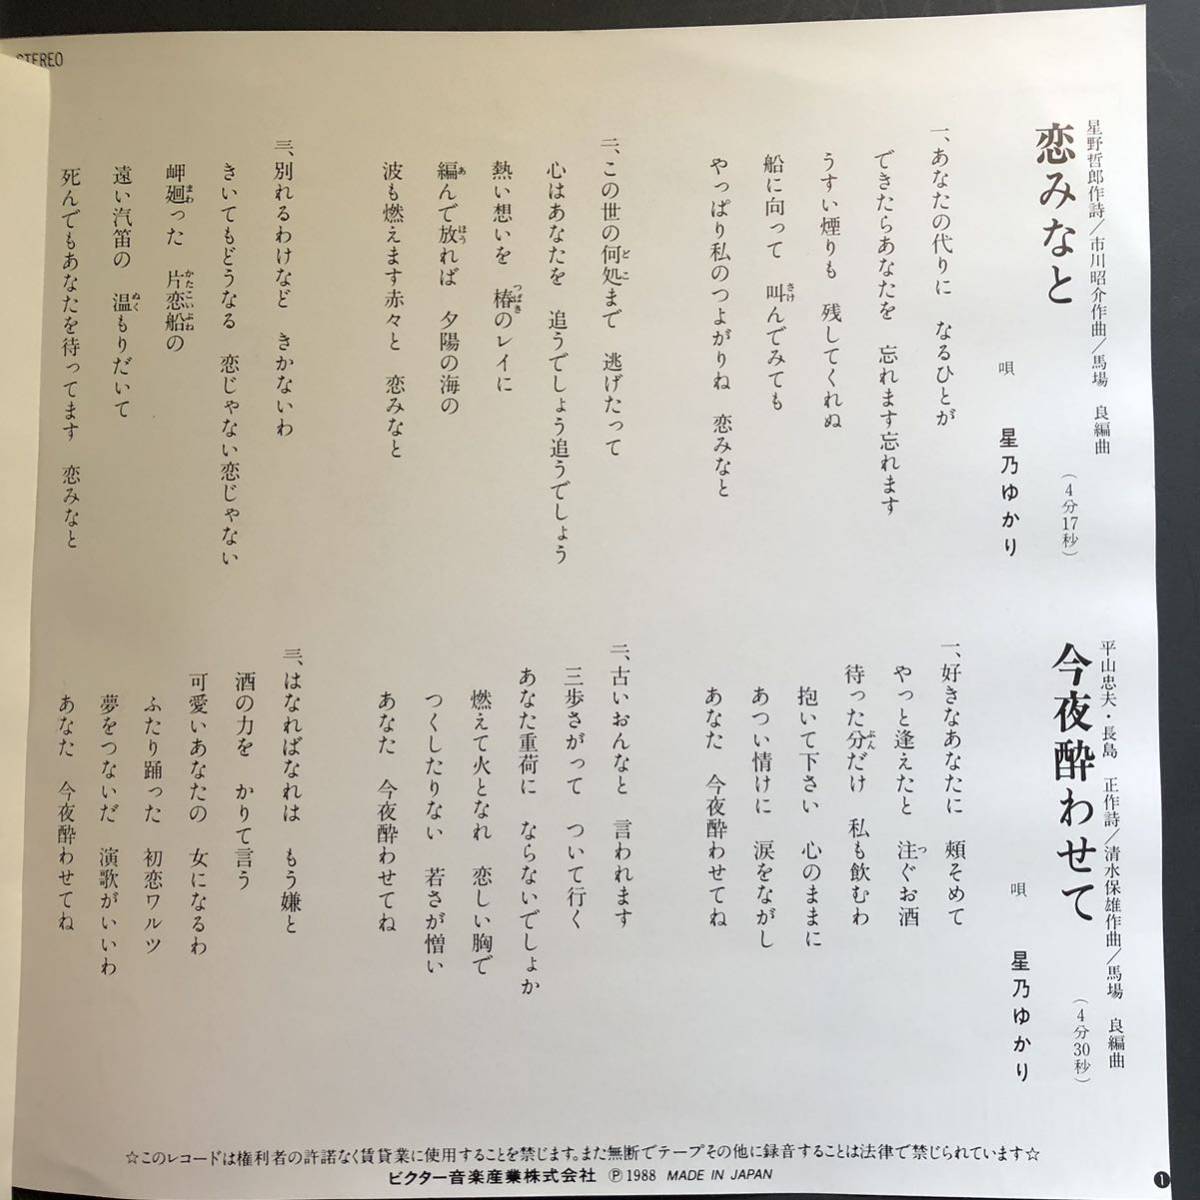 STEREO
星野哲郎作詩/市川昭介作曲/馬場 良編曲
恋みなと
(4分17秒)
唄 星乃ゆかり
一、あなたの代りに なるひとが
できたらあなたを 忘れます忘れます
うすい煙りも 残してくれぬ
船に向って 叫んでみても
やっぱり私のつよがりね 恋みなと
二、この世の何処まで 逃げたって
心はあなたを 追うでしょう追うでしょう
熱い想いを 椿のレイに
編んで放れば 夕陽の海の
波も燃えます赤々と 恋みなと
三、別れるわけなど きかないわ
きいてもどうなる 恋じゃない恋じゃない
岬廻った 片恋船の
遠い汽笛の 温もりだいて
死んでもあなたを待ってます 恋みなと
平山忠夫・長島 正作詩/清水保雄作曲/馬場 良編曲
今夜酔わせて
(4分30秒)
唄 星乃ゆかり
一、好きなあなたに 頬そめて
やっと逢えたと 注ぐお酒
待った分だけ 私も飲むわ
抱いて下さい 心のままに
あつい情けに 涙をながし
あなた 今夜酔わせてね
二、古いおんなと 言われます
三歩さがって ついて行く
あなた重荷に ならないでしょか
燃えて火となれ 恋しい胸で
つくしたりない 若さが憎い
あなた 今夜酔わせてね
三、はなればなれは もう嫌と
酒の力を かりて言う
可愛いあなたの 女になるわ
ふたり踊った 初恋ワルツ
夢をつないだ 演歌がいいわ
あなた 今夜酔わせてね
☆このレコードは権利者の許諾なく賃貸業に使用することを禁じます。また無断でテープその他に録音することは法律で禁じられています☆
ビクター音楽産業株式会社 Ⓟ1988 MADE IN JAPAN
❶